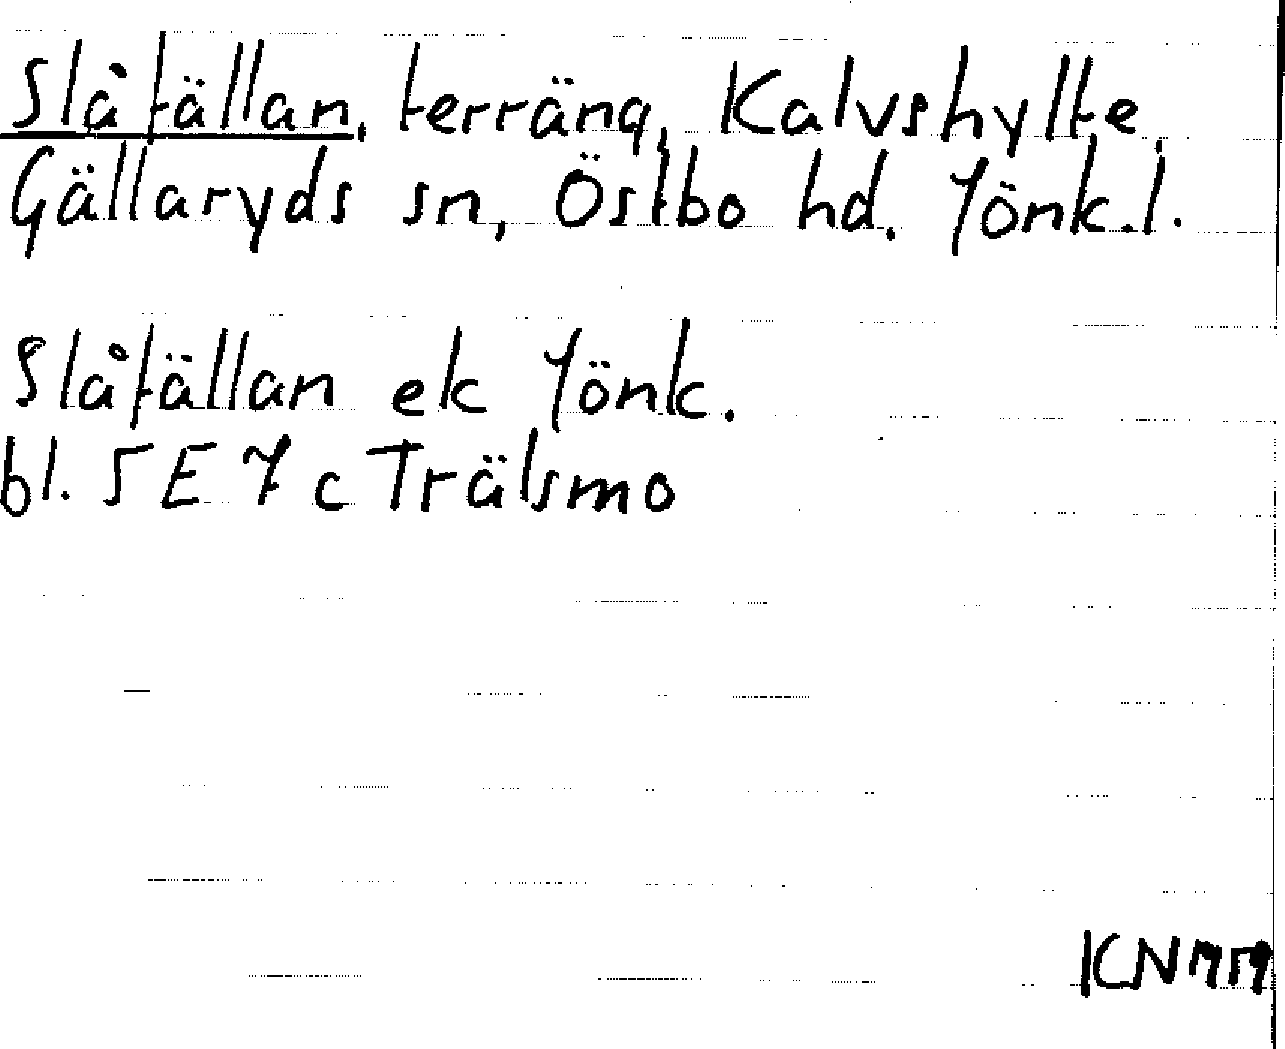 Slåfällan, terräng, Kalvshylte,
Gällaryds sn, Östbo hd. Jönk.l.
Slåfällan ek Jönk.
bl. 5E 7c Trälsmo
KCN 1959